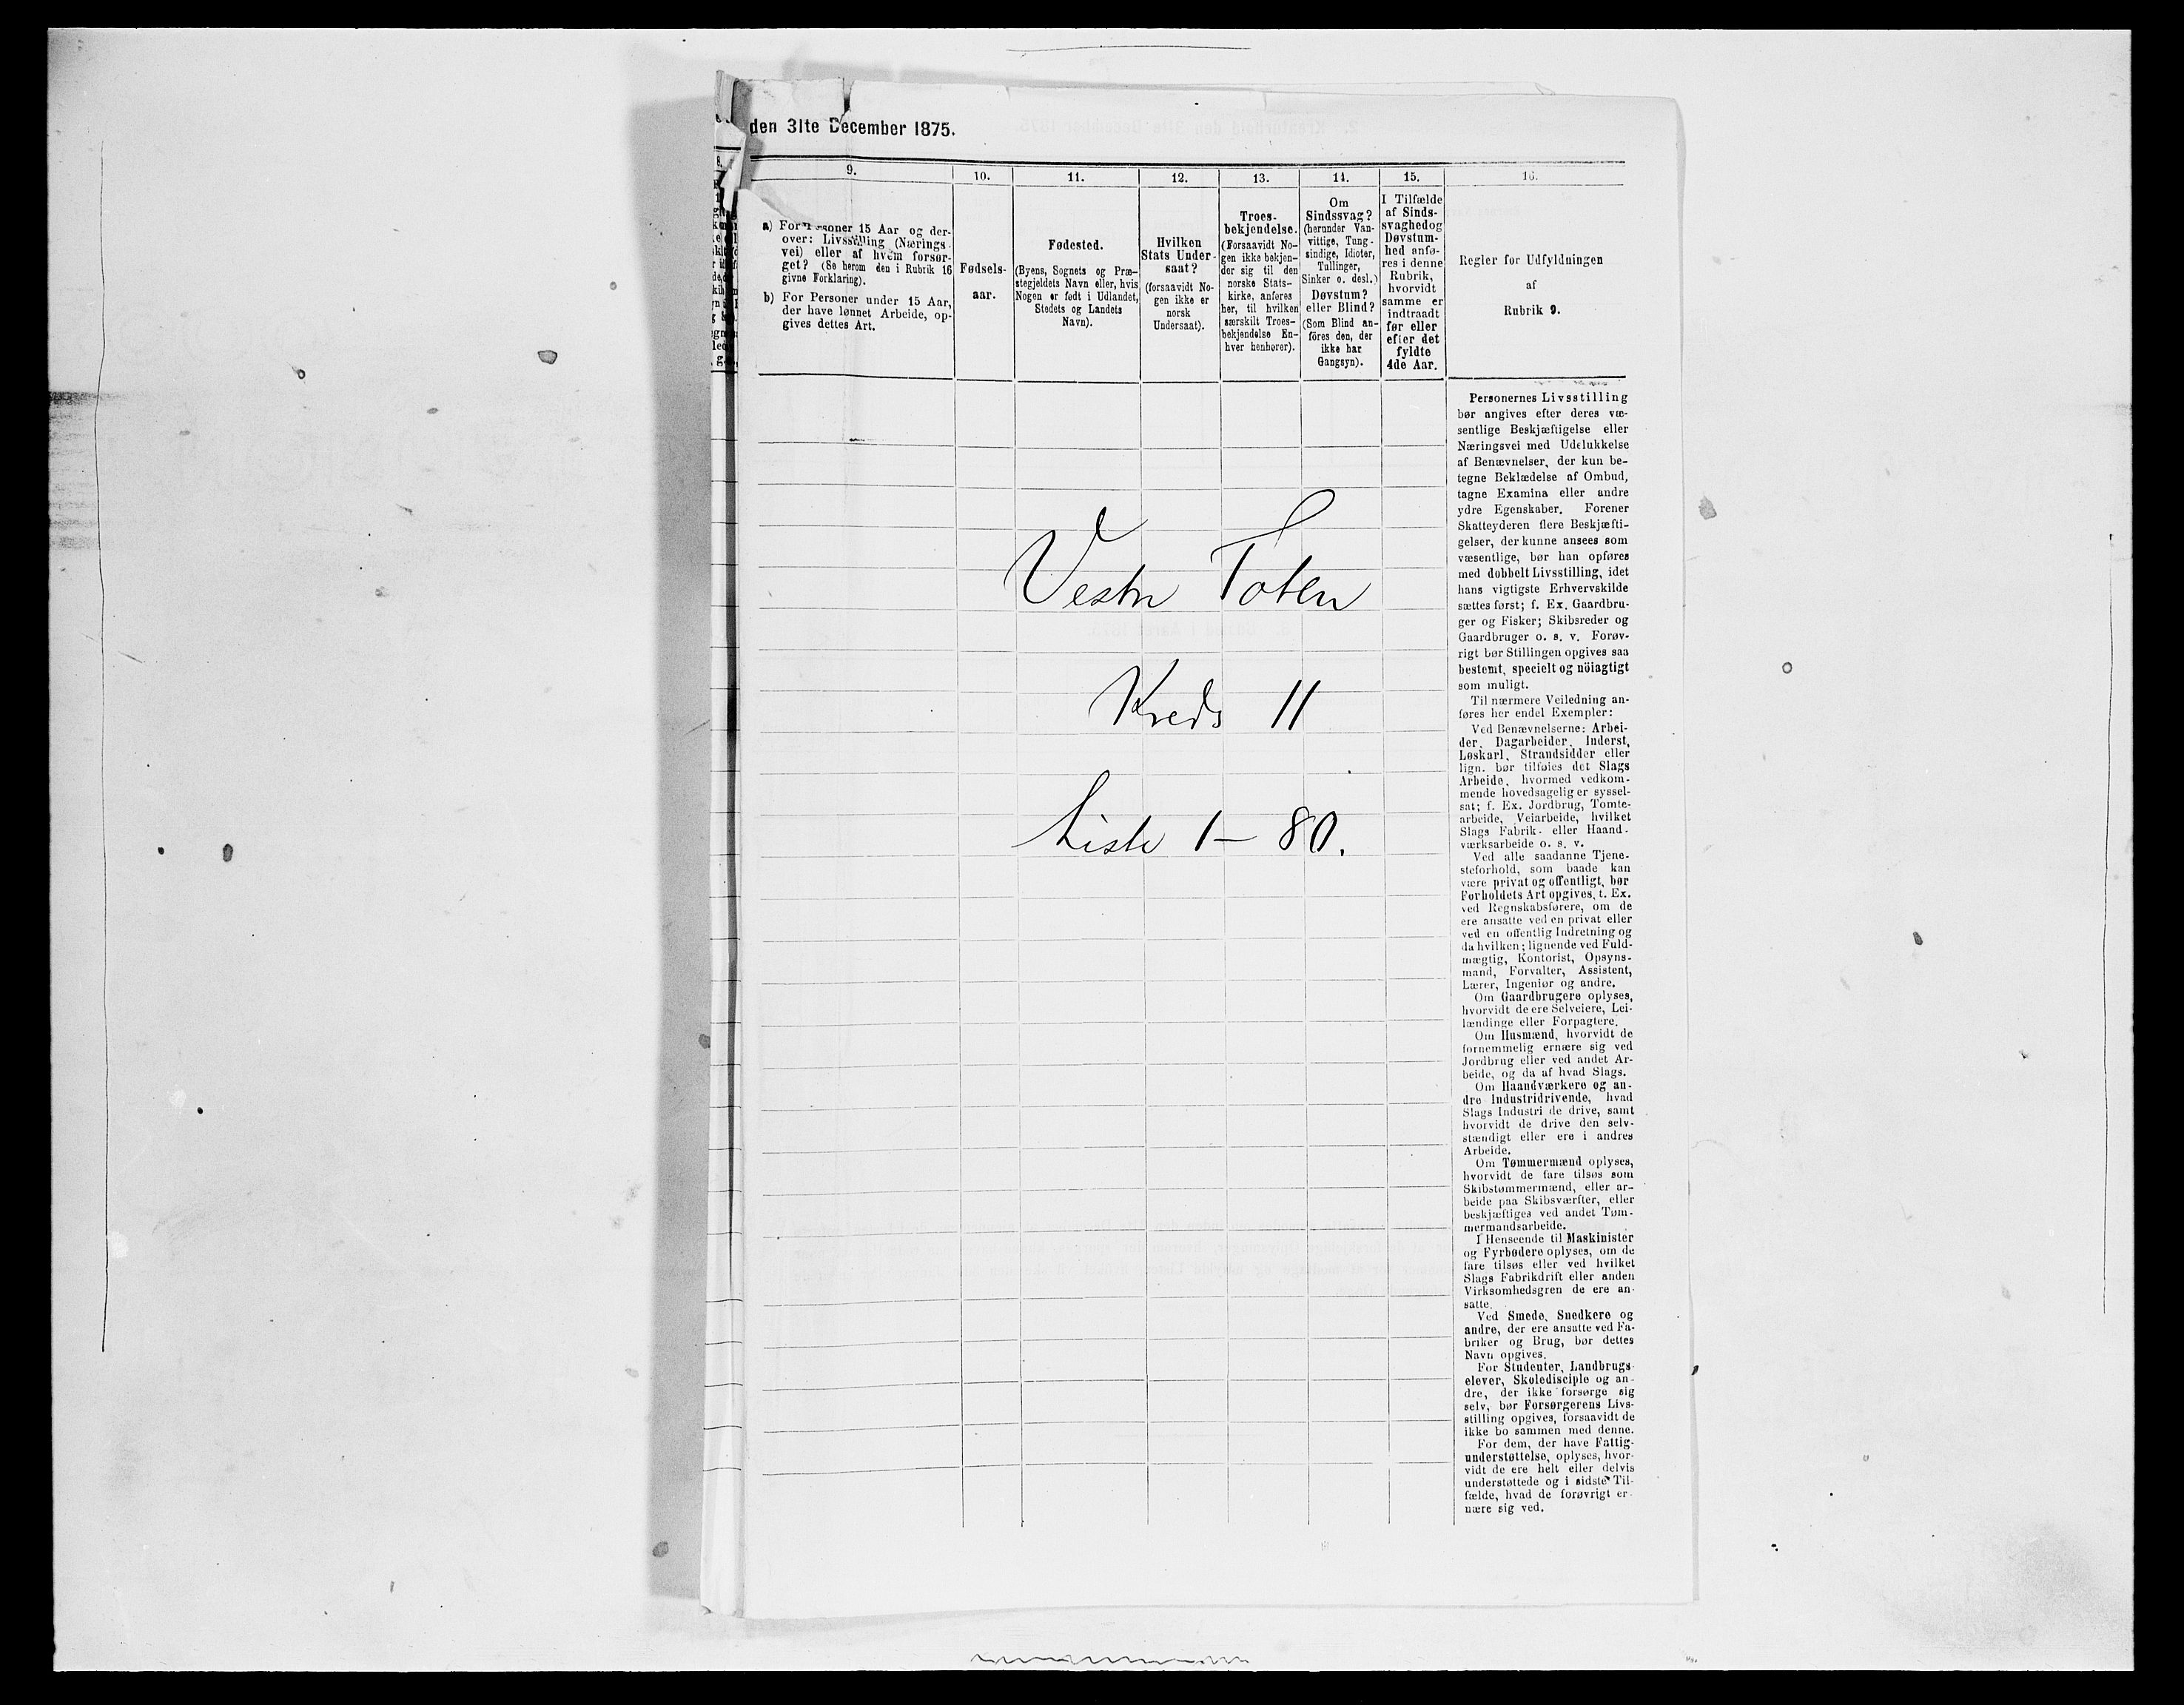 den 31te December 1875.
8.
9.
10.
11.
12.
13.
14.
15.
16.
a) For Personer 15 Aar og der-
over: Livsstilling (Nærings-
vei) eller af hvem forsør-
get? (Se herom den i Rubrik 16
givne Forklaring).
b) For Personer under 15 Aar,
der have lønnet Arbeide, op-
gives dettes Art.
Fødsels-
aar.
Fødested.
(Byens, Sognets og Præ-
stegjeldets Navn eller, hvis
Nogen er født i Udlandet,
Stedets og Landets
Navn).
Hvilken
Stats Under-
saat?
(forsaavidt No-
gen ikke er
norsk
Undersaat).
Troes-
bekjendelse.
(Forsaavidt No-
gen ikke bekjen-
der sig til den
norske Stats-
kirke, anføres
her, til hvilken
særskilt Troes-
bekjendelse En-
hver henhører).
Om
Sindssvag?
(herunder Van-
vittige, Tung-
sindige, Idioter,
Tullinger,
Sinker o. desl.)
Døvstum?
eller Blind?
(Som Blind an-
föres den, der
ikke har
Gangsyn).
I Tilfælde
af Sinds-
svaghed og
Døvstum-
hed anfø-
res i denne
Rubrik,
hvorvidt
samme er
indtraadt
før eller
efter det
fyldte
4de Aar.
Regler for Udfyldningen
af
Rubrik 9.
Personernes Livsstilling
bør angives efter deres væ-
sentlige Beskjæftigelse eller
Næringsvei med Udelukkelse
af Benævnelser, der kun be-
tegne Beklædelse af Ombud,
tagne Examina eller andre
ydre Egenskaber. Forener
Skatteyderen flere Beskjæfti-
gelser, der kunne ansees som
væsentlige, bør han opføres
med dobbelt Livsstilling, idet
hans vigtigste Erhvervskilde
sættes først; f. Ex. Gaardbru-
ger og Fisker; Skibsreder og
Gaardbruger o. s. v. Forøv-
rigt bør Stillingen opgives saa
bestemt, specielt og nöiagtigt
som muligt.
Til nærmere Veiledning an-
føres her endel Exempler:
Ved Benævnelserne: Arbei-
der, Dagarbeider, Inderst,
Løskarl, Strandsidder eller
lign. bør tilføies det Slags
Arbeide, hvormed vedkom-
mende hovedsagelig er syssel-
sat; f. Ex. Jordbrug, Tomte-
arbeide, Veiarbeide, hvilket
Slags Fabrik- eller Haand-
værksarbeide o. s. v.
Ved alle saadanne Tjene-
steforhold, som baade kan
være privat og offentligt, bør
Forholdets Art opgives, t. Ex.
ved Regnskabsførere, om de
ere ansatte ved en privat eller
ved en offentlig Indretning og
da hvilken; lignende ved Fuld-
mægtig, Kontorist, Opsyns-
mand, Forvalter, Assistent,
Lærer, Ingeniør og andre.
Om Gaardbrugere oplyses,
hvorvidt de ere Selveiere, Lei-
lændinge eller Forpagtere.
Om Husmænd, hvorvidt de
fornemmelig ernære sig ved
Jordbrug eller ved andet Ar-
beide, og da af hvad Slags.
Om Haandværkere og an-
dre Industridrivende, hvad
Slags Industri de drive, samt
hvorvidt de drive den selv-
stændigt eller ere i andres
Arbeide.
Om Tømmermænd oplyses,
hvorvidt de fare tilsøs som
Skibstømmermænd, eller ar-
beide paa Skibsværfter, eller
beskjæftiges ved andet Tøm-
mermandsarbeide.
I Henseende til Maskinister
og Fyrbødere oplyses, om de
fare tilsøs eller ved hvilket
Slags Fabrikdrift eller anden
Virksomhedsgren de ere an-
satte.
Ved Smede, Snedkere og
andre, der ere ansatte ved Fa-
briker og Brug, bør dettes
Navn opgives.
For Studenter, Landbrugs-
elever, Skoledisciple og an-
dre, der ikke forsørge sig
selv, bør Forsørgerens Livs-
stilling opgives, forsaavidt de
ikke bo sammen med denne.
For dem, der have Fattig-
understøttelse, oplyses, hvor-
vidt de ere helt eller delvis
understøttede og i sidste Til-
fælde, hvad de forøvrigt er-
nære sig ved.
Vestre Toten
Kreds 11
Liste 1 – 80.